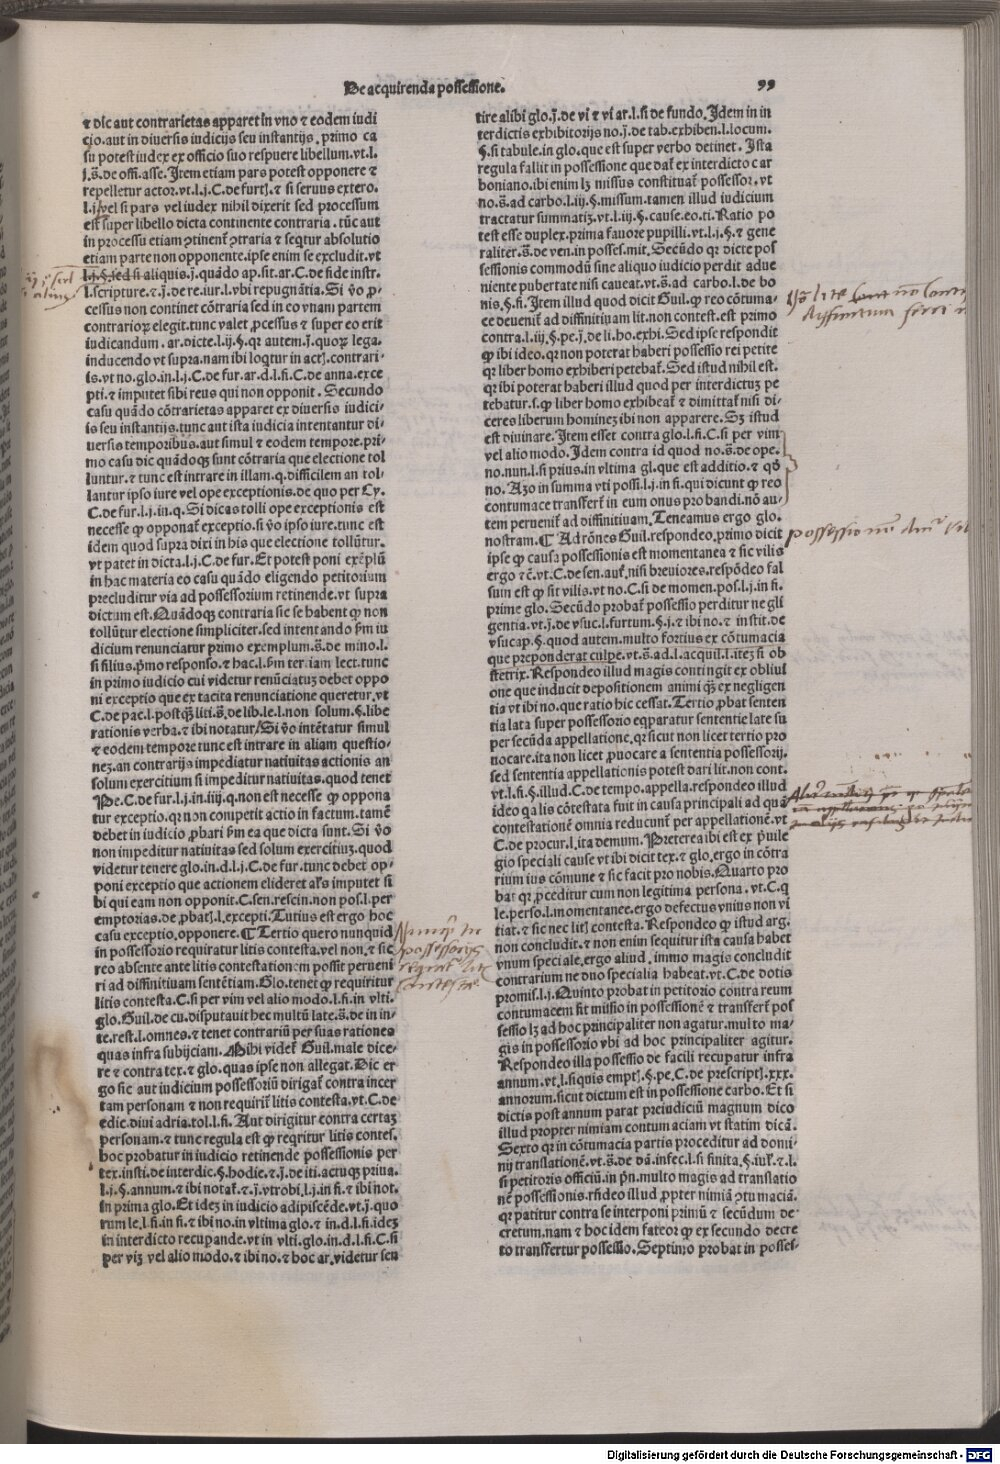 De acquirenda possessione. 99
⁊ dic aut contrarietas apparet in vno ⁊ eodem iudi
cio. aut in diuersis iudicijs seu instantijs. primo ca
su potest iudex ex officio suo respuere libellum. vt. l.
j. s̄. de offi. asse. Item etiam pars potest opponere ⁊
repelletur actor. vt. l. j. C. de furt. ⁊ si seruus extero.
l. j. vel si pars vel iudex nihil dixerit sed processum
est super libello dicta continente contraria. tūc aut
in processu etiam ꝯtinent ꝯtraria ⁊ seqtur absolutio
etiam parte non opponente. ipse enim se excludit. vt
l. j. §. sed si aliquis. j. quādo ap. sit. ar. C. de fide instr.
l. scripture. ⁊. j. de re. iur. l. vbi repugnātia. Si v̄o ꝓ-
cessus non continet cōtraria sed in eo vnam partem
contrarioꝝ elegit. tunc valet ꝓcessus ⁊ super eo erit
iudicandum. ar. dicte. l. ij. §. qꝛ autem. j. quoꝝ lega.
inducendo vt supra. nam ibi loqtur in act. contrari-
is. vt no. glo. in. l. j. C. de fur. ar. d. l. fi. C. de anna. exce
pti. ⁊ imputet sibi reus qui non opponit. Secundo
casu quādo cōtrarietas apparet ex diuersis iudici-
is seu instantijs. tunc aut ista iudicia intentantur di-
uersis temporibus. aut simul ⁊ eodem tempore. pri-
mo casu dic quādoqꝫ sunt cōtraria que electione tol
luntur. ⁊ tunc est intrare in illam. q. difficilem an tol-
lantur ipso iure vel ope exceptionis. de quo per Cy.
C. de fur. l. j. in. q. Si dicas tolli ope exceptionis est
necesse ꝙ opponat exceptio. si v̄o ipso iure. tunc est
idem quod supra dixi in his que electione tollūtur.
vt patet in dicta. l. j. C. de fur. Et potest poni exēplū
in hac materia eo casu quādo eligendo petitorium
precluditur via ad possessorium retinende. vt supra
dictum est. Quādoqꝫ contraria sic se habent ꝙ non
tollūtur electione simpliciter. sed intentando pm̄ iu
dicium renunciatur primo exemplum. s̄. de mino. l.
si filius. pmo responso. ⁊ hac. l. pm̄ ter. iam lect. tunc
in primo iudicio cui videtur renūciatuꝫ debet oppo
ni exceptio que ex tacita renunciatione queretur. vt
C. de pac. l. postqꝫ liti. s̄. de lib. le. l. non solum. §. libe
rationis verba. ⁊ ibi notatur / Si v̄o intētatur simul
⁊ eodem tempore tunc est intrare in aliam questio-
neꝫ. an contrarijs impediatur natiuitas actionis an
solum exercitium si impeditur natiuitas. quod tenet
Pe. C. de fur. l. j. in. iiij. q. non est necesse ꝙ oppona
tur exceptio. qꝛ non competit actio in factum. tamē
debet in iudicio ꝓbari pm̄ ea que dicta sunt. Si v̄o
non impeditur natiuitas sed solum exercitiuꝫ. quod
videtur tenere glo. in. d. l. j. C. de fur. tunc debet op-
poni exceptio que actionem elideret al's imputet si
bi qui eam non opponit. C. sen. rescin. non pos. l. per
emptorias. de ꝓbat. l. excepti. Tutius est ergo hoc
casu exceptio. opponere. ¶ Tertio quero nunquid
in possessorio requiratur litis contesta. vel non. ⁊ sic
reo absente ante litis contestationem possit perueni
ri ad diffinitiuam sentētiam. Glo. tenet ꝙ requiritur
litis contesta. C. si per vim vel alio modo. l. fi. in vlti.
glo. Guil. de cu. disputauit hec multū late. s̄. de in in-
te. rest. l. omnes. ⁊ tenet contrariū per suas rationes
quas infra subijciam. Mihi videt Guil. male dice-
re ⁊ contra tex. ⁊ glo. quas ipse non allegat. Dic er
go sic aut iudicium possessoriū dirigat contra incer
tam personam ⁊ non requirit litis contesta. vt. C. de
edic. diui adria. tol. l. fi. Aut dirigitur contra certaꝫ
personam. ⁊ tunc regula est ꝙ reqritur litis contes.
hoc probatur in iudicio retinende possessionis per
tex. insti. de interdic. §. hodie. ⁊. j. de iti. actuqꝫ priua.
l. j. §. annum. ⁊ ibi notat. ⁊. j. vtrobi. l. j. in fi. ⁊ ibi not.
in prima glo. Et ideꝫ in iudicio adipiscēde. vt. j. quo
rum le. l. fi. in fi. ⁊ ibi no. in vltima glo. ⁊ in. d. l. fi. ideꝫ
in interdicto recupande. vt in vlti. glo. in. d. l. fi. C. si
per viꝫ vel alio modo. ⁊ ibi no. ⁊ hoc ar. videtur sen
tire alibi glo. j. de vi ⁊ vi ar. l. si de fundo. Idem in in
terdictis exhibitorijs no. j. de tab. exhiben. l. locum.
§. si tabule. in glo. que est super verbo detinet. Ista
regula fallit in possessione que dat ex interdicto car
boniano. ibi enim lꝫ missus constituat possessor. vt
no. s̄. ad carbo. l. iij. §. missum. tamen illud iudicium
tractatur summatiꝫ. vt. l. iij. §. cause. eo. ti. Ratio po
test esse duplex. prima fauore pupilli. vt. l. j. §. ⁊ gene
raliter. s̄. de ven. in posses. mit. Secūdo qꝛ dicte pos
sessionis commodū sine aliquo iudicio perdit adue
niente pubertate nisi caueat. vt. s̄. ad carbo. l. de bo
nis. §. fi. Item illud quod dicit Guil. ꝙ reo cōtuma-
ce deuenit ad diffinitiuam lit. non contest. est primo
contra. l. iij. §. pe. j. de li. ho. exhi. Sed ipse respondit
ꝙ ibi ideo. qꝛ non poterat haberi possessio rei petite
qꝛ liber homo exhiberi petebat. Sed istud nihil est.
qꝛ ibi poterat haberi illud quod per interdictuꝫ pe
tebatur. s. ꝙ liber homo exhibeat ⁊ dimittat nisi di-
ceres liberum hominez ibi non apparere. Sꝫ istud
est diuinare. Item esset contra glo. l. fi. C. si per vim
vel alio modo. Idem contra id quod no. s̄. de ope.
no. nun. l. si prius. in vltima gl. que est additio. ⁊ qđ
no. Azo in summa vti possi. l. j. in fi. qui dicunt ꝙ reo
contumace transfert in eum onus probandi. nō au-
tem peruenit ad diffinitiuam. Teneamus ergo glo.
nostram. ¶ Ad rōnes Guil. respondeo. primo dicit
ipse ꝙ causa possessionis est momentanea ⁊ sic vilis
ergo ⁊c̄. vt. C. de sen. aut. nisi breuiores. respōdeo fal
sum est ꝙ sit vilis. vt no. C. si de momen. pos. l. j. in fi.
prime glo. Secūdo probat possessio perditur ne gli
gentia. vt. j. de vsuc. l. furtum. §. j. ⁊ ibi no. ⁊ instit. de
vsucap. §. quod autem. multo fortius ex cōtumacia
que preponderat culpe. vt. s̄. ad. l. acquil. l. iteꝫ si ob
stetrix. Respondeo illud magis contingit ex obliui
one que inducit depositionem animi qꝫ ex negligen
tia vt ibi no. que ratio hic cessat. Tertio ꝓbat senten
tia lata super possessorio eqparatur sententie late su
per secūda appellatione. qꝛ sicut non licet tertio pro
uocare. ita non licet ꝓuocare a sententia possessorij.
sed sententia appellationis potest dari lit. non cont.
vt. l. fi. §. illud. C. de tempo. appella. respondeo illud
ideo qa lis cōtestata fuit in causa principali ad quā
contestationē omnia reducunt per appellationē. vt
C. de procur. l. ita demum. Preterea ibi est ex puile
gio speciali cause vt ibi dicit tex. ⁊ glo. ergo in cōtra
rium ius cōmune ⁊ sic facit pro nobis. Quarto pro
bat qꝛ ꝓceditur cum non legitima persona. vt. C. q
le. perso. l. momentanee. ergo defectus vnius non vi
tiat. ⁊ sic nec lit contesta. Respondeo ꝙ istud arg.
non concludit. ⁊ non enim sequitur ista causa habet
vnum speciale. ergo aliud. immo magis concludit
contrarium ne duo specialia habeat. vt. C. de dotis
promis. l. j. Quinto probat in petitorio contra reum
contumacem fit missio in possessionē ⁊ transfert pos
sessio lꝫ ad hoc principaliter non agatur. multo ma-
gis in possessorio vbi ad hoc principaliter agitur.
Respondeo illa possessio de facili recupatur infra
annum. vt. l. siquis empt. §. pe. C. de prescript. xxx.
annorum. sicut dictum est in possessione carbo. Et si
dictis post annum parat preiudiciū magnum dico
illud propter nimiam contumaciam vt statim dicā.
Sexto qꝛ in cōtumacia partis proceditur ad domi-
nij translationē. vt. s̄. de dā. infec. l. si finita. §. iul. ⁊. l.
si petitoris officiū. in pn̄. multo magis ad translatio
nē possessionis. rn̄deo illud ꝓpter nimiā ꝯtumaciā.
qꝛ patitur contra se interponi primū ⁊ secūdum de-
cretum. nam ⁊ hoc idem fateor ꝙ ex secundo decre
to transfertur possessio. Septimo probat in posses-
possessorijs
Digitalisierung gefördert durch die Deutsche Forschungsgemeinschaft - DFG